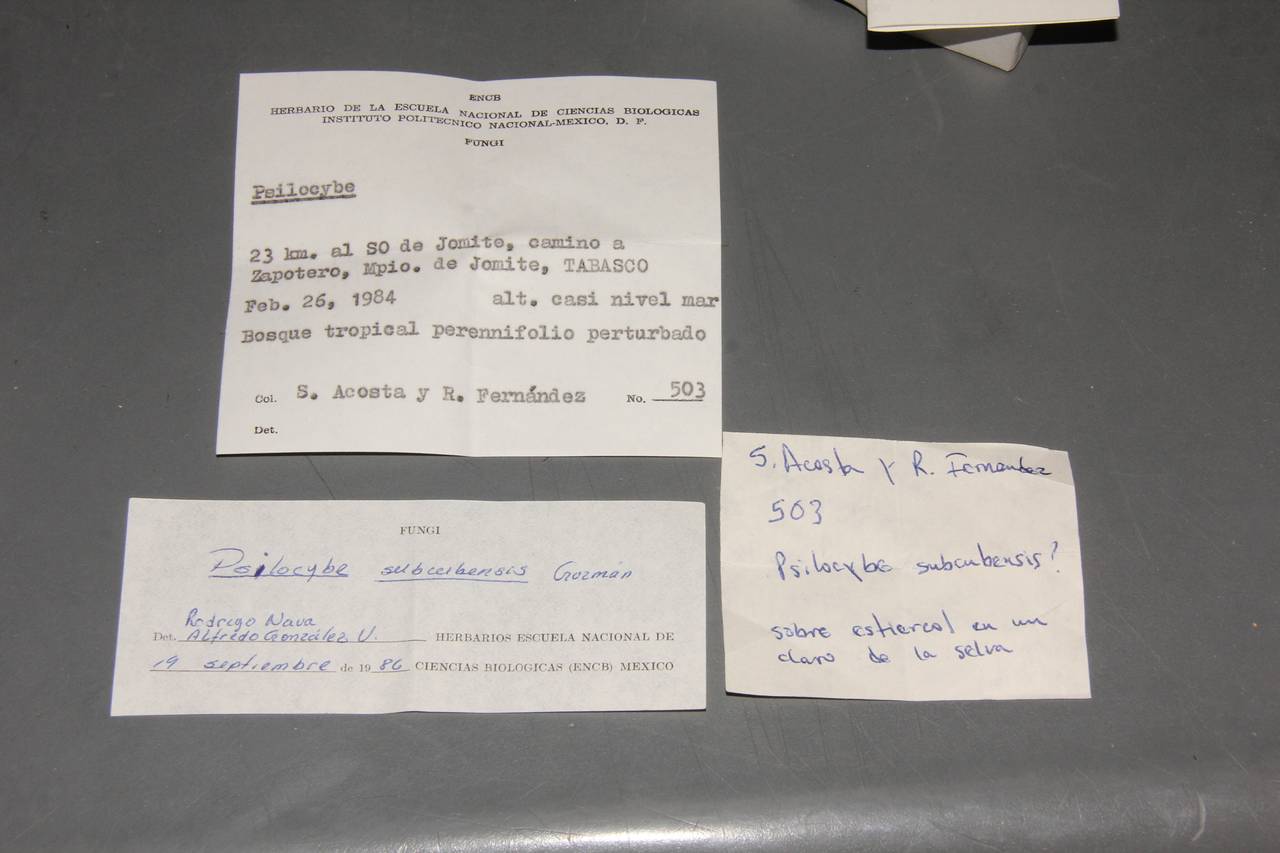 ENCB
HERBARIO DE LA ESCUELA NACIONAL DE CIENCIAS BIOLOGICAS
INSTITUTO POLITECNICO NACIONAL-MEXICO, D. F.
FUNGI
Psilocybe
23 km. al SO de Jomite, camino a
Zapotero, Mpio. de Jomite, TABASCO
Feb. 26, 1984 alt. casi nivel mar
Bosque tropical perennifolio perturbado
Col. S. Acosta y R. Fernández No. 503
Det.
FUNGI
Psilocybe subcubensis Guzmán
Rodrigo Nava
Det. Alfredo González V. HERBARIOS ESCUELA NACIONAL DE
19 septiembre de 1986 CIENCIAS BIOLOGICAS (ENCB) MEXICO
S. Acosta y R. Fernandez
503
Psilocybe subcubensis?
sobre estiercol en un
claro de la selva